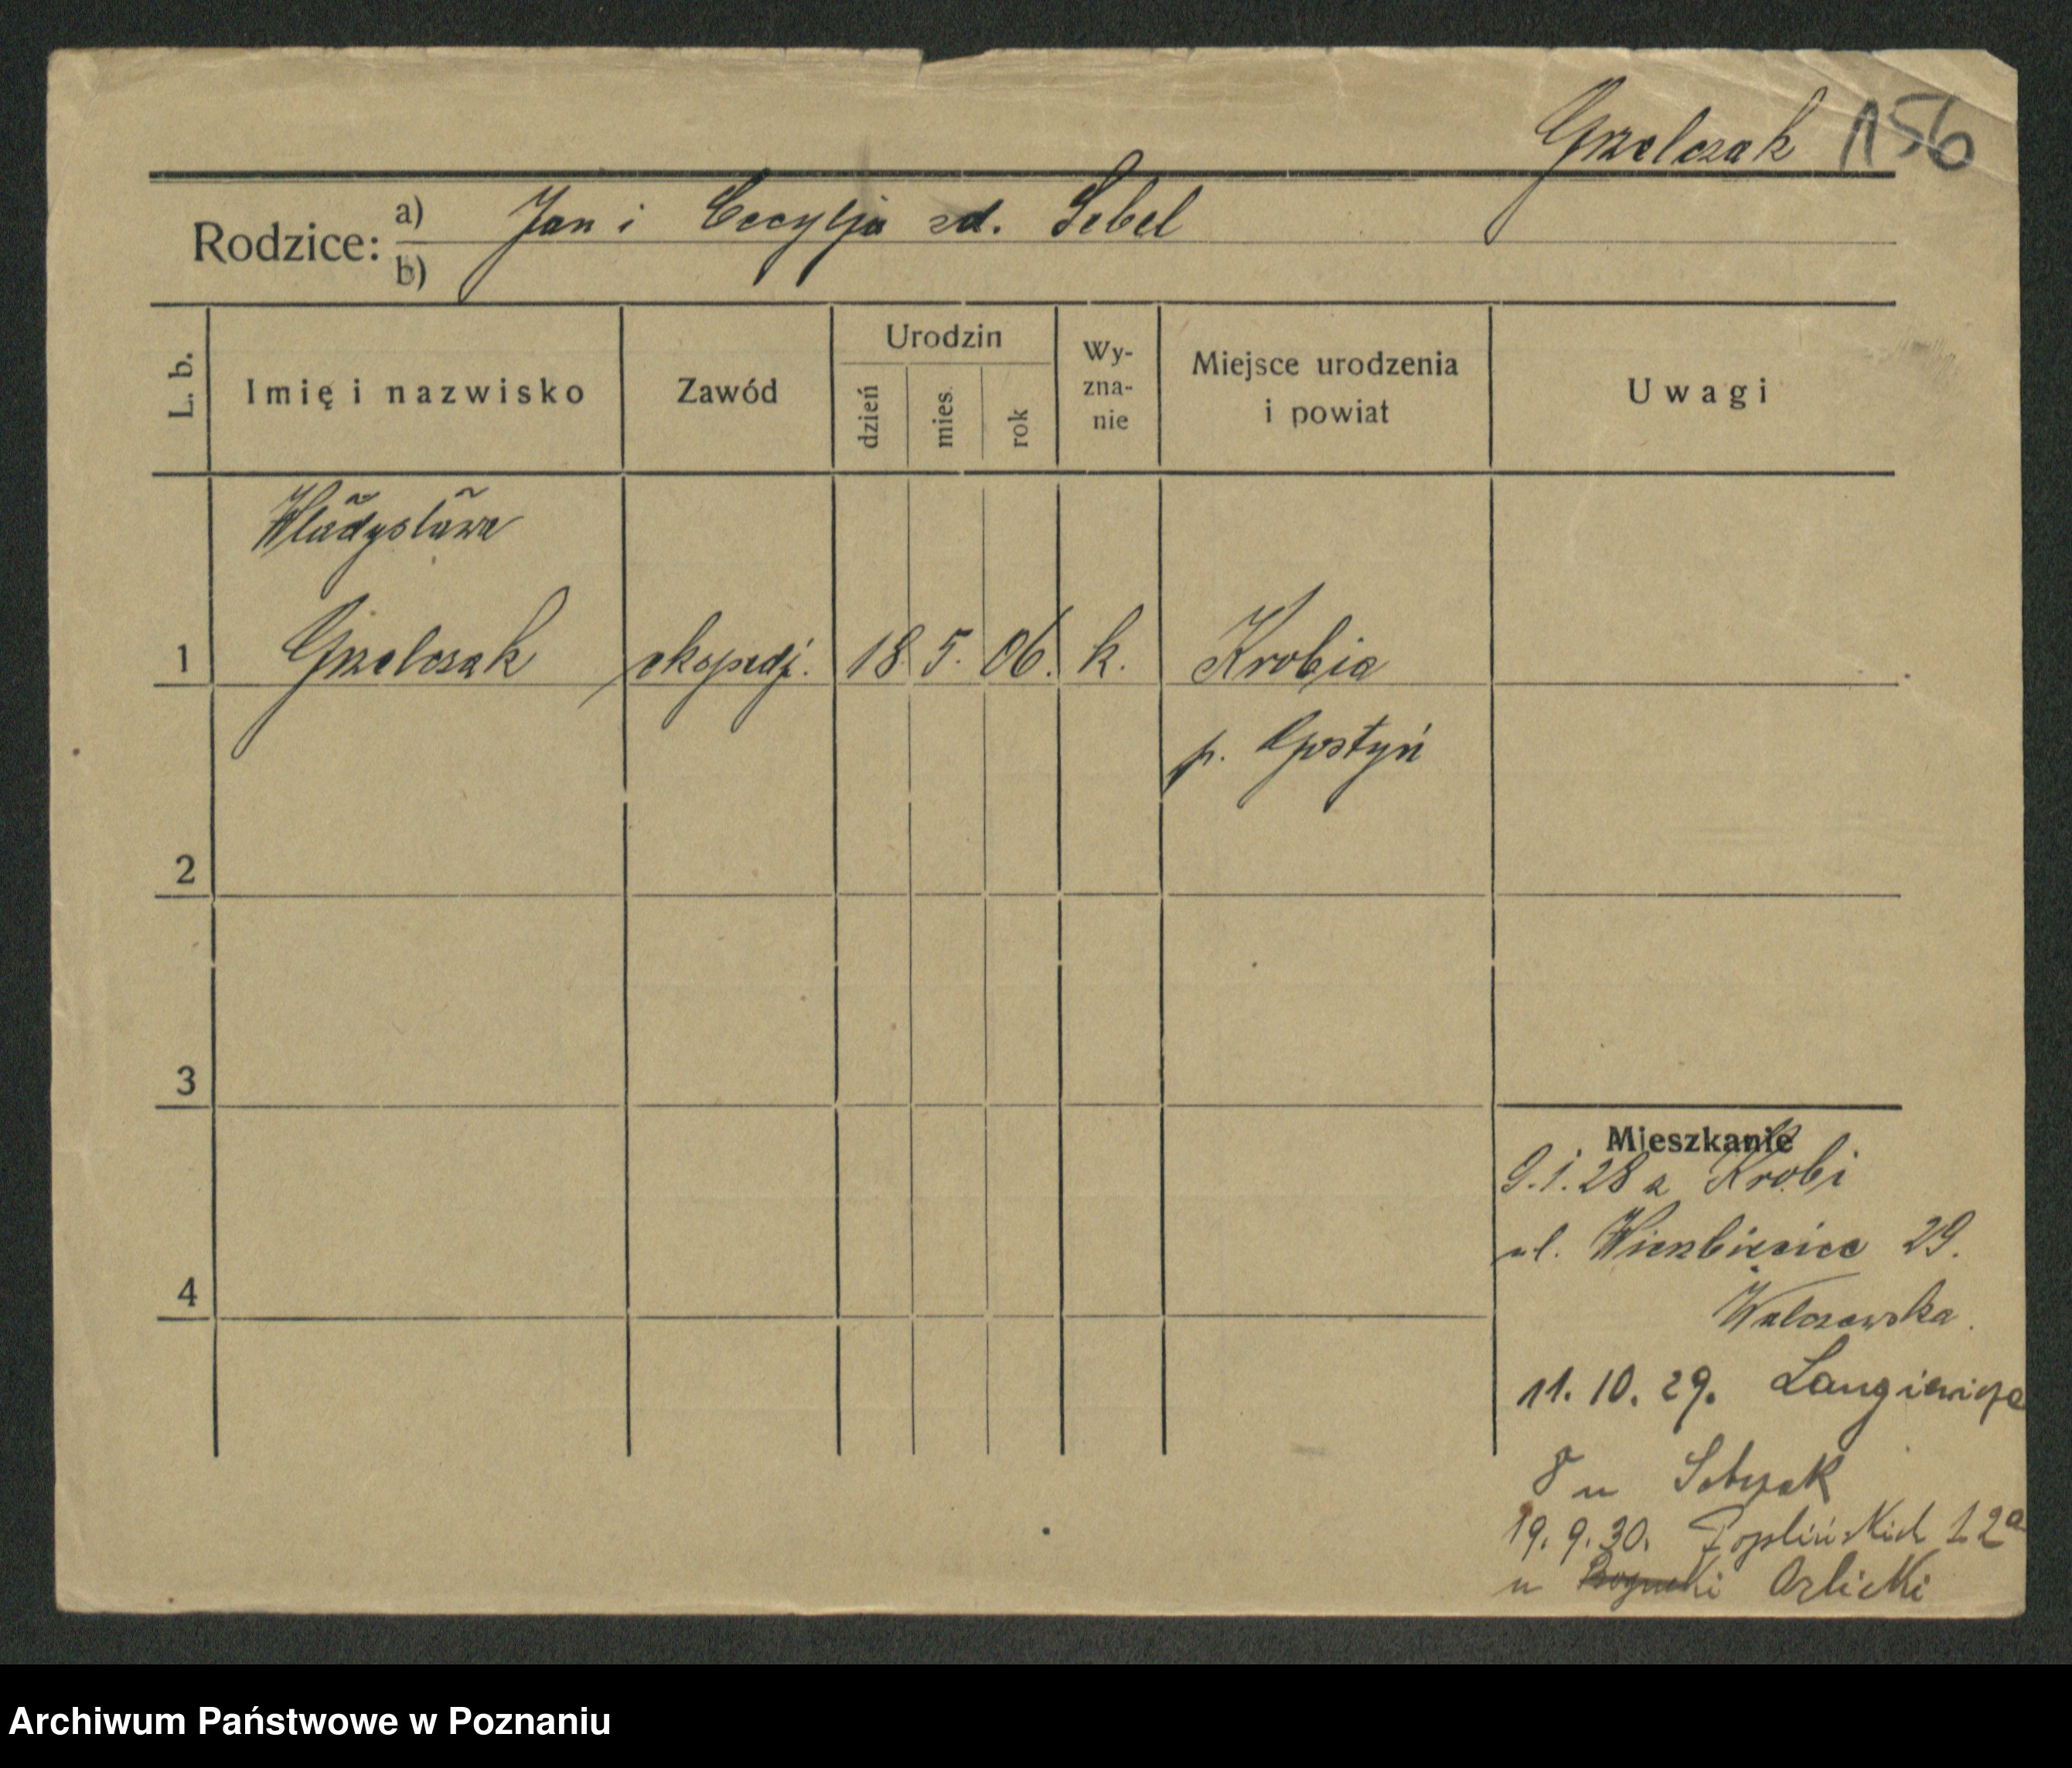 Grzelczak 156
Rodzice: a) Jan i Cecylja zd. Sebel
b)
L. b.
Imię i nazwisko
Zawód
Urodzin
dzień
mies.
rok
Wy-
zna-
nie
Miejsce urodzenia
i powiat
Uwagi
Władysława
1 Grzelczak ekspedj. 18. 5. 06. k. Krobia
p. Gostyń
2
3
4
Mieszkanie
9.1.28 z Krobi
ul. Wierzbięcice 29.
Walczewska.
11. 10. 29. Langiewicza
8 u Sobczak
19. 9. 30. Poplińskich 12a
u Bogucki Orlicki
Archiwum Państwowe w Poznaniu